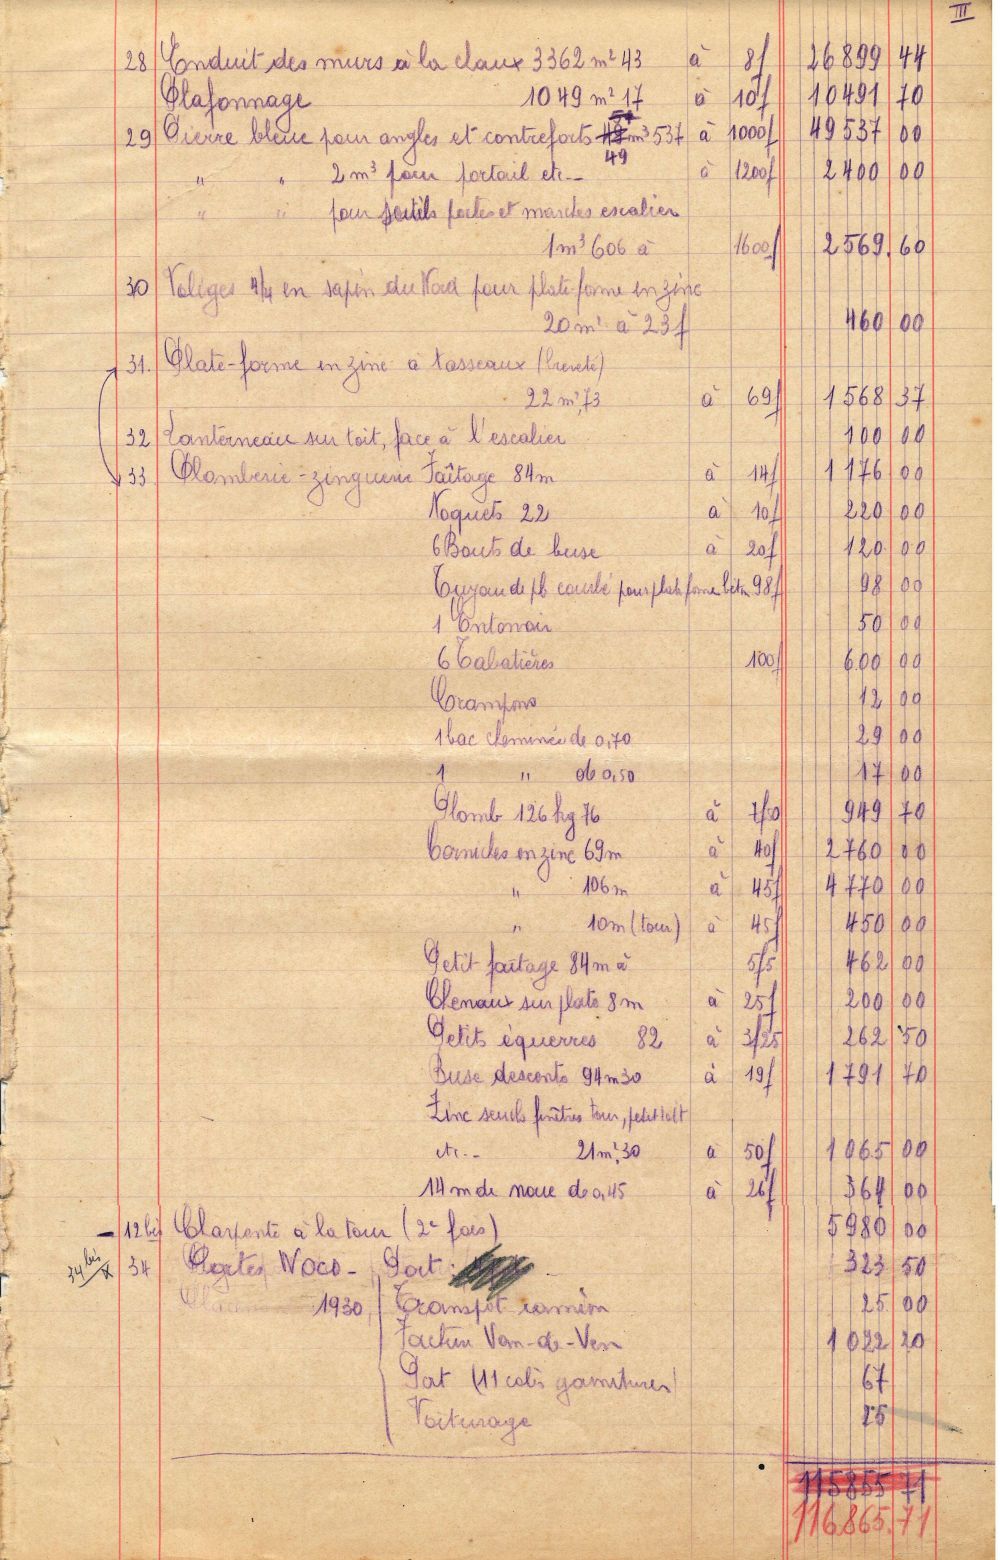 III
28 Enduit des murs à la chaux 3362 m² 43 à 8f 26899 44
Plafonnage 1049 m² 17 à 10f 10491 70
29 Pierre bleue pour angles et contreforts 49 m³ 537 à 1000f 49537 00
" " 2 m³ pour portail etc-- à 1200f 2400 00
" " pour seuils portes et marches escalier
1 m³ 606 à 1600f 2569.60
30 Voliges 4/4 en sapin du Nord pour plate-forme en zinc
20 m² à 23f 460 00
31. Plate-forme en zinc à tasseaux (breveté)
22 m²,73 à 69f 1568 37
32 Lanterneau sur toit, face à l'escalier 100 00
33 Plomberie-zinguerie Faîtage 84 m à 14f 1176 00
Noquets 22 à 10f 220 00
6 Bouts de buse à 20f 120 00
Tuyau de pb courbé pour plate forme béton 98f 98 00
1 Entonnoir 50 00
6 Tabatières 100f 600 00
Crampons 12 00
1 bac cheminée de 0,70 29 00
1 " de 0,50 17 00
Plomb 126 kg 76 à 7f50 949 70
Corniches en zinc 69 m à 40f 2760 00
" 106 m à 45f 4770 00
" 10 m (tour) à 45f 450 00
Petit faîtage 84 m à 5f5 462 00
Chenaux sur plate 8 m à 25f 200 00
Petits équerres 82 à 3f25 262 50
Buse descente 94 m 30 à 19f 1791 70
Zinc seuils fenêtres tour, petit toit
etc-- 21 m²,30 à 50f 1065 00
14 m de noue de 0,45 à 26f 364 00
- 12 bis Charpente à la tour (2e fois) 5980 00
34 bis x 34 Portes Woco - Port 323 50
1930 Transport camion 25 00
Facture Van-de-Ven 1022 20
Port (11 colis garnitures) 67
Voiturage 25
115855 71
116.865.71